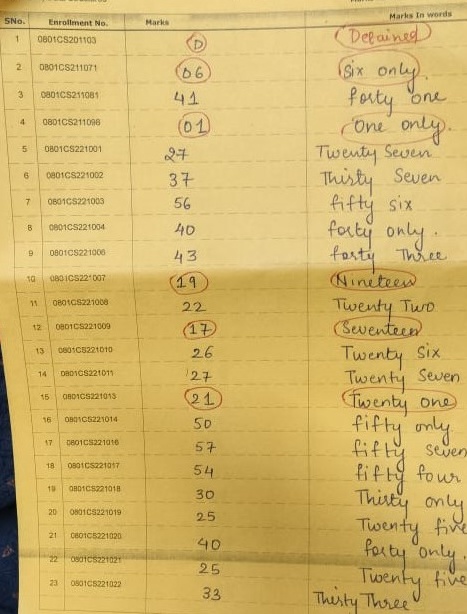 SNo. Enrollment No. Marks Marks In words
1 0801CS201103 D Detained
2 0801CS211071 06 Six only.
3 0801CS211081 41 forty one
4 0801CS211098 01 One only.
5 0801CS221001 27 Twenty Seven
6 0801CS221002 37 Thirty Seven
7 0801CS221003 56 fifty six
8 0801CS221004 40 forty only.
9 0801CS221006 43 forty Three
10 0801CS221007 19 Nineteen
11 0801CS221008 22 Twenty Two
12 0801CS221009 17 Seventeen
13 0801CS221010 26 Twenty Six
14 0801CS221011 27 Twenty Seven
15 0801CS221013 21 Twenty one
16 0801CS221014 50 fifty only
17 0801CS221016 57 fifty seven
18 0801CS221017 54 fifty four
19 0801CS221018 30 Thirty only
20 0801CS221019 25 Twenty five
21 0801CS221020 40 forty only.
22 0801CS221021 25 Twenty five
23 0801CS221022 33 Thirty Three